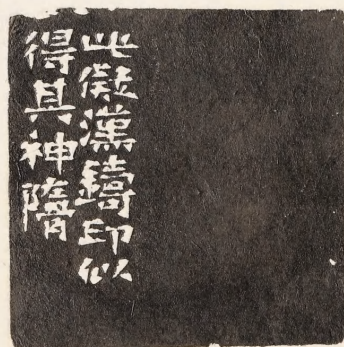 此儗漢鑄印似
得其神隋